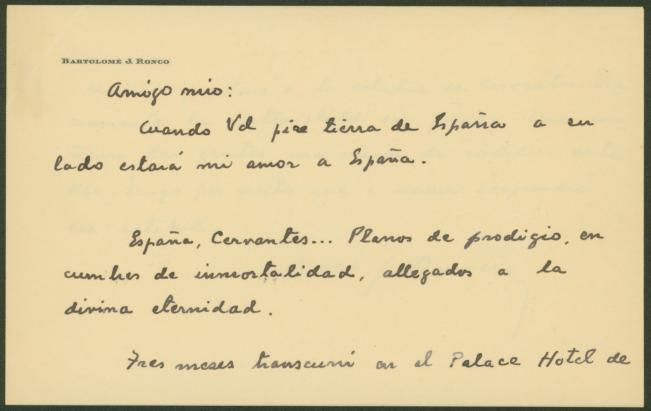 BARTOLOMÉ J. RONCO
Amigo mio:
Cuando Vd pise tierra de España a su
lado estará mi amor a España.
España, Cervantes... Planos de prodigio, en
cumbres de inmortalidad, allegados a la
divina eternidad.
Tres meses transcurrí en el Palace Hotel de